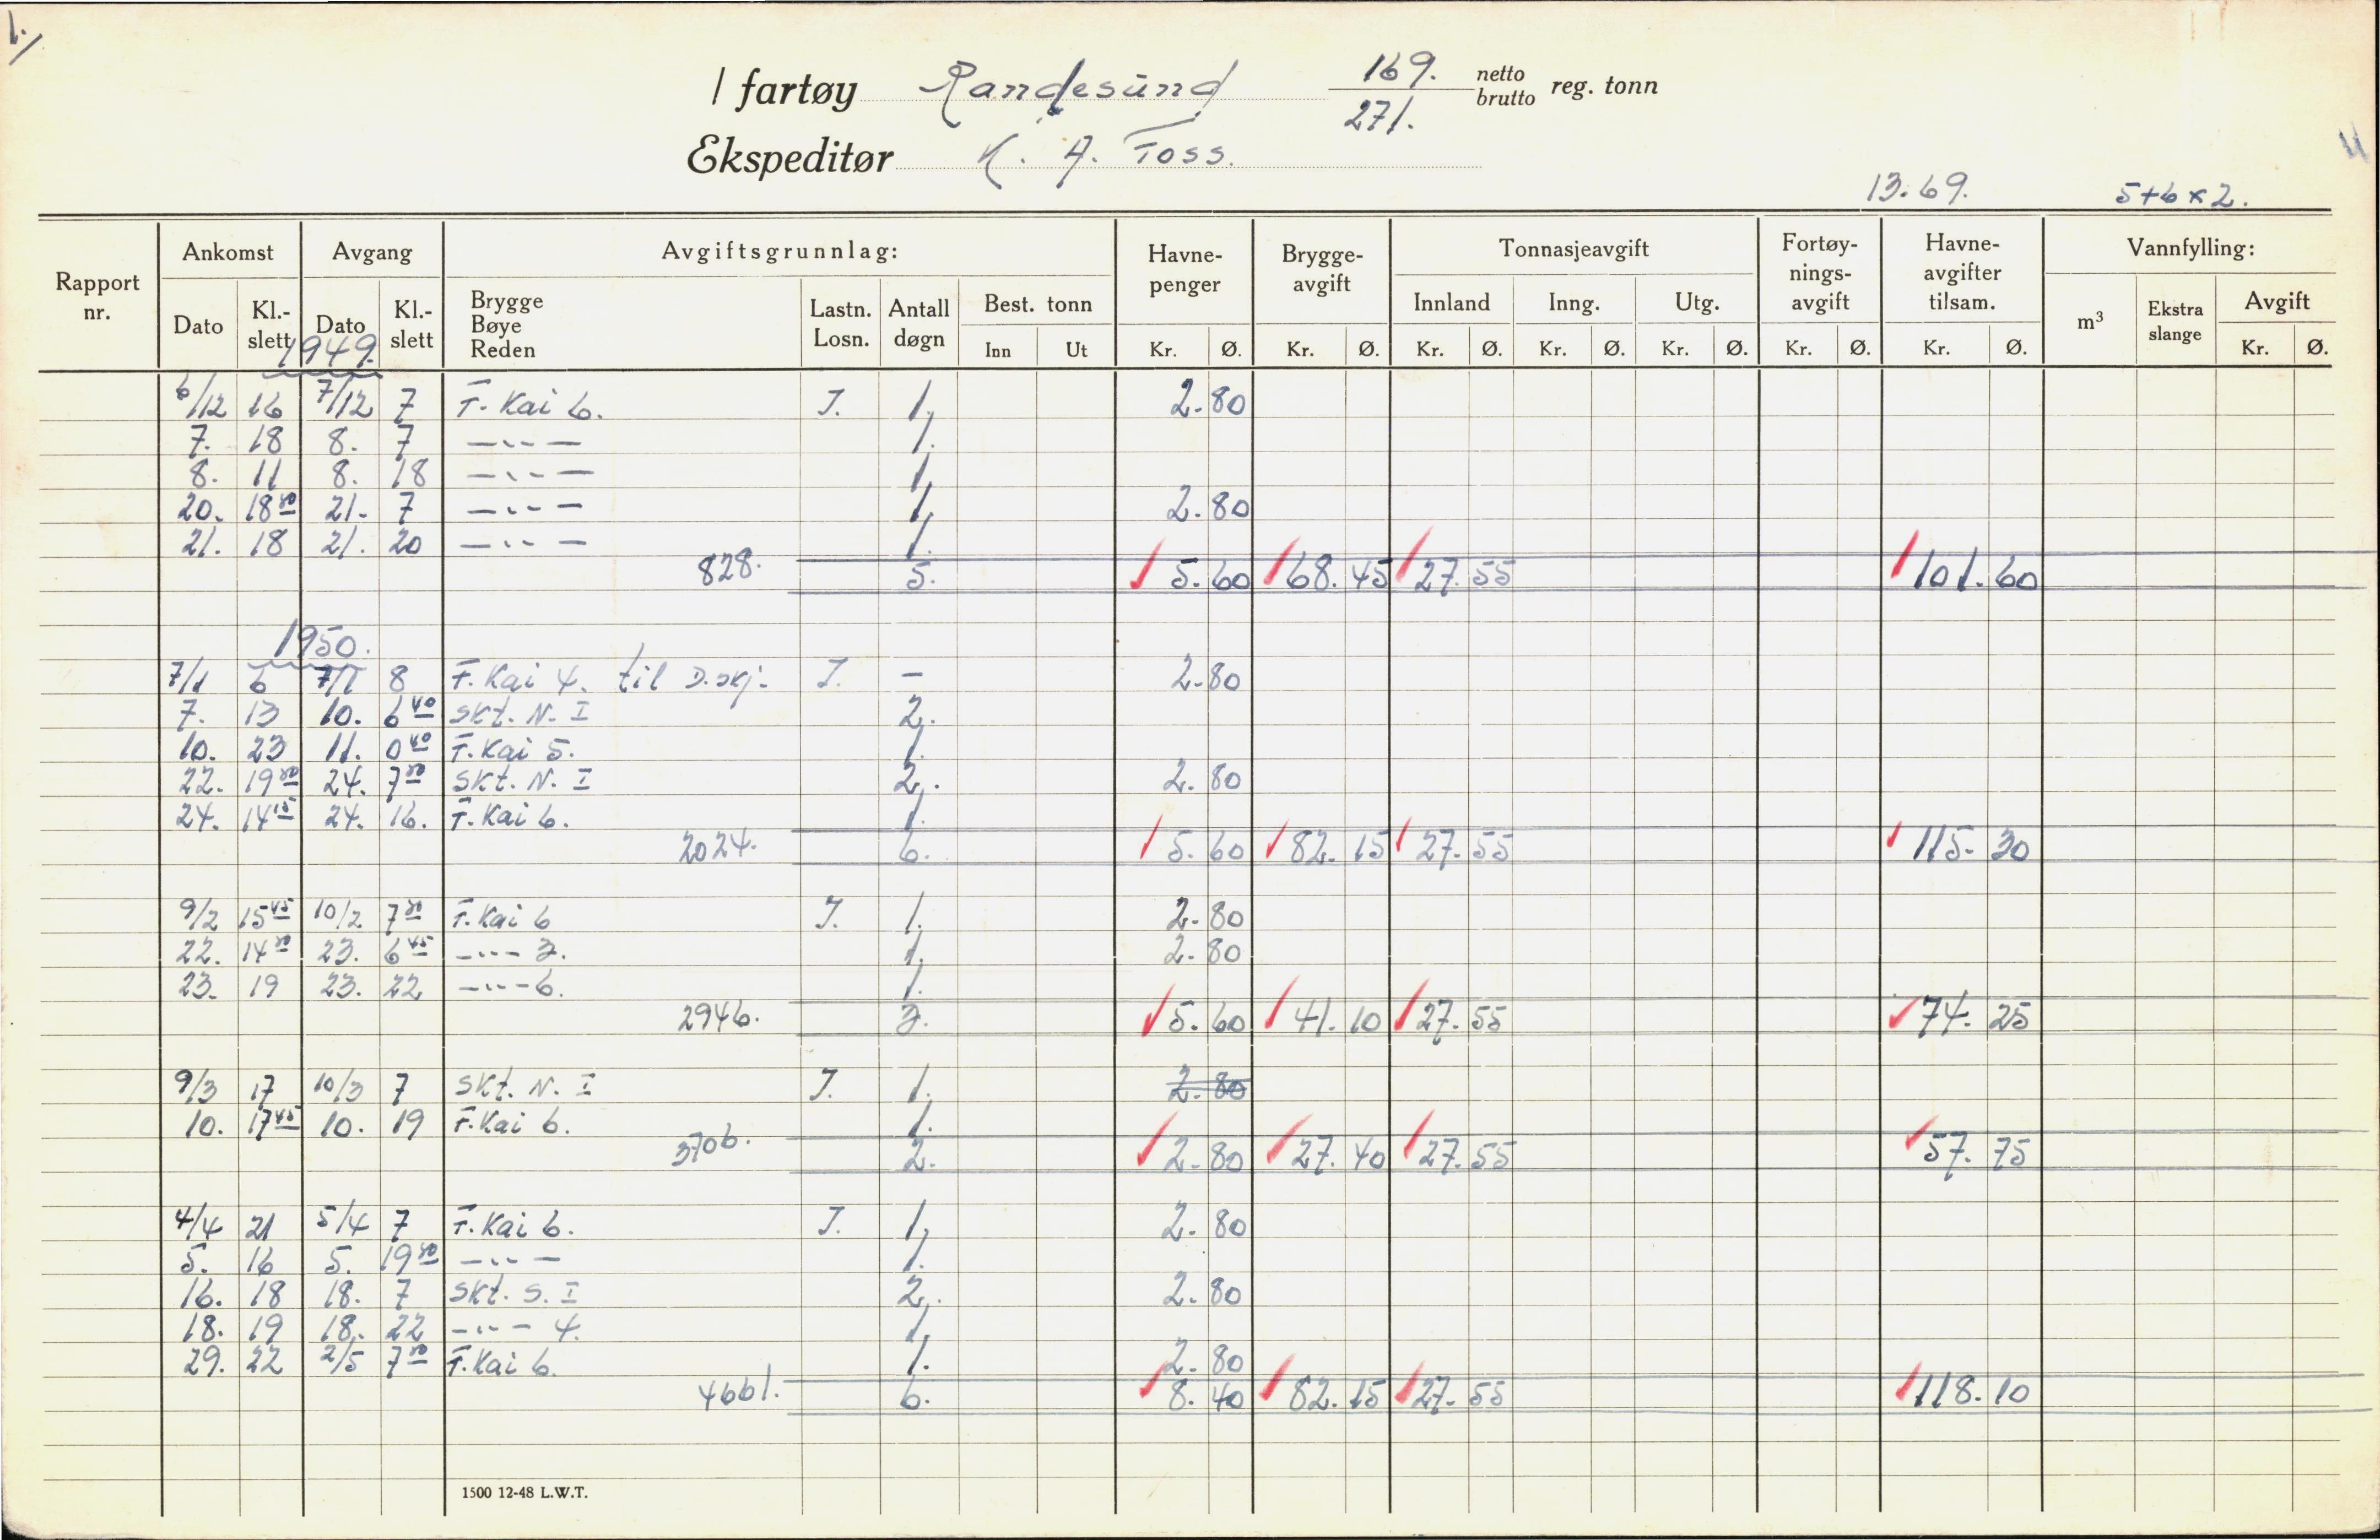 1.
I fartøy Randesund 169. netto
271. brutto reg. tonn
Ekspeditør K. A. Foss.
13.69. 5+6x2.
Rapport nr. Ankomst Avgang Avgiftsgrunnlag: Havne-penger Brygge-avgift Tonnasjeavgift Fortøy-nings-avgift Havne-avgifter tilsam. Vannfylling:
Dato Kl.-slett Dato Kl.-slett Brygge Bøye Reden Lastn. Losn. Antall døgn Best. tonn Innland Inng. Utg. m³ Ekstra slange Avgift
Inn Ut Kr. Ø. Kr. Ø. Kr. Ø. Kr. Ø. Kr. Ø. Kr. Ø. Kr. Ø. Kr. Ø.
1949.
6/12 16 7/12 7 F. Kai 6. I. 1. 2.80
7. 18 8. 7 —"— 1.
8. 11 8. 18 —"— 1.
20. 18 30 21. 7 —"— 1. 2.80
21. 18 21. 20 —"— 1.
828. 5. 5.60 68.45 27.55 101.60
1950.
7/1 6 7/1 8 F. Kai 4. til D.skj. I. – 2.80
7. 13 10. 6 40 Skt. N. I 2.
10. 23 11. 0 40 F. Kai 5. 1.
22. 19 30 24. 7 30 Skt. N. I 2. 2.80
24. 14 15 24. 16. F. Kai 6. 1.
2024. 6. 5.60 82.15 27.55 115.30
9/2 15 45 10/2 7 30 F. Kai 6 I. 1. 2.80
22. 14 30 23. 6 45 —"— 3. 1. 2.80
23. 19 23. 22 —"— 6. 1.
2946. 3. 5.60 41.10 27.55 74.25
9/3 17 10/3 7 Skt. N. I I. 1. 2.80
10. 17 45 10. 19 F. Kai 6. 1.
3706. 2. 2.80 27.40 27.55 57.75
4/4 21 5/4 7 F. Kai 6. I. 1. 2.80
5. 16 5. 19 30 —"— 1.
16. 18 18. 7 Skt. S. I 2. 2.80
18. 19 18. 22 —"— 4. 1.
29. 22 2/5 7 30 F. Kai 6. 1. 2.80
4661. 6. 8.40 82.15 27.55 118.10
1500 12-48 L.W.T.